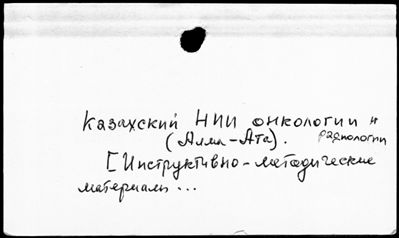 Казахский НИИ онкологии и
радиологии
(Алма-Ата).
[Инструктивно-методические
материалы...